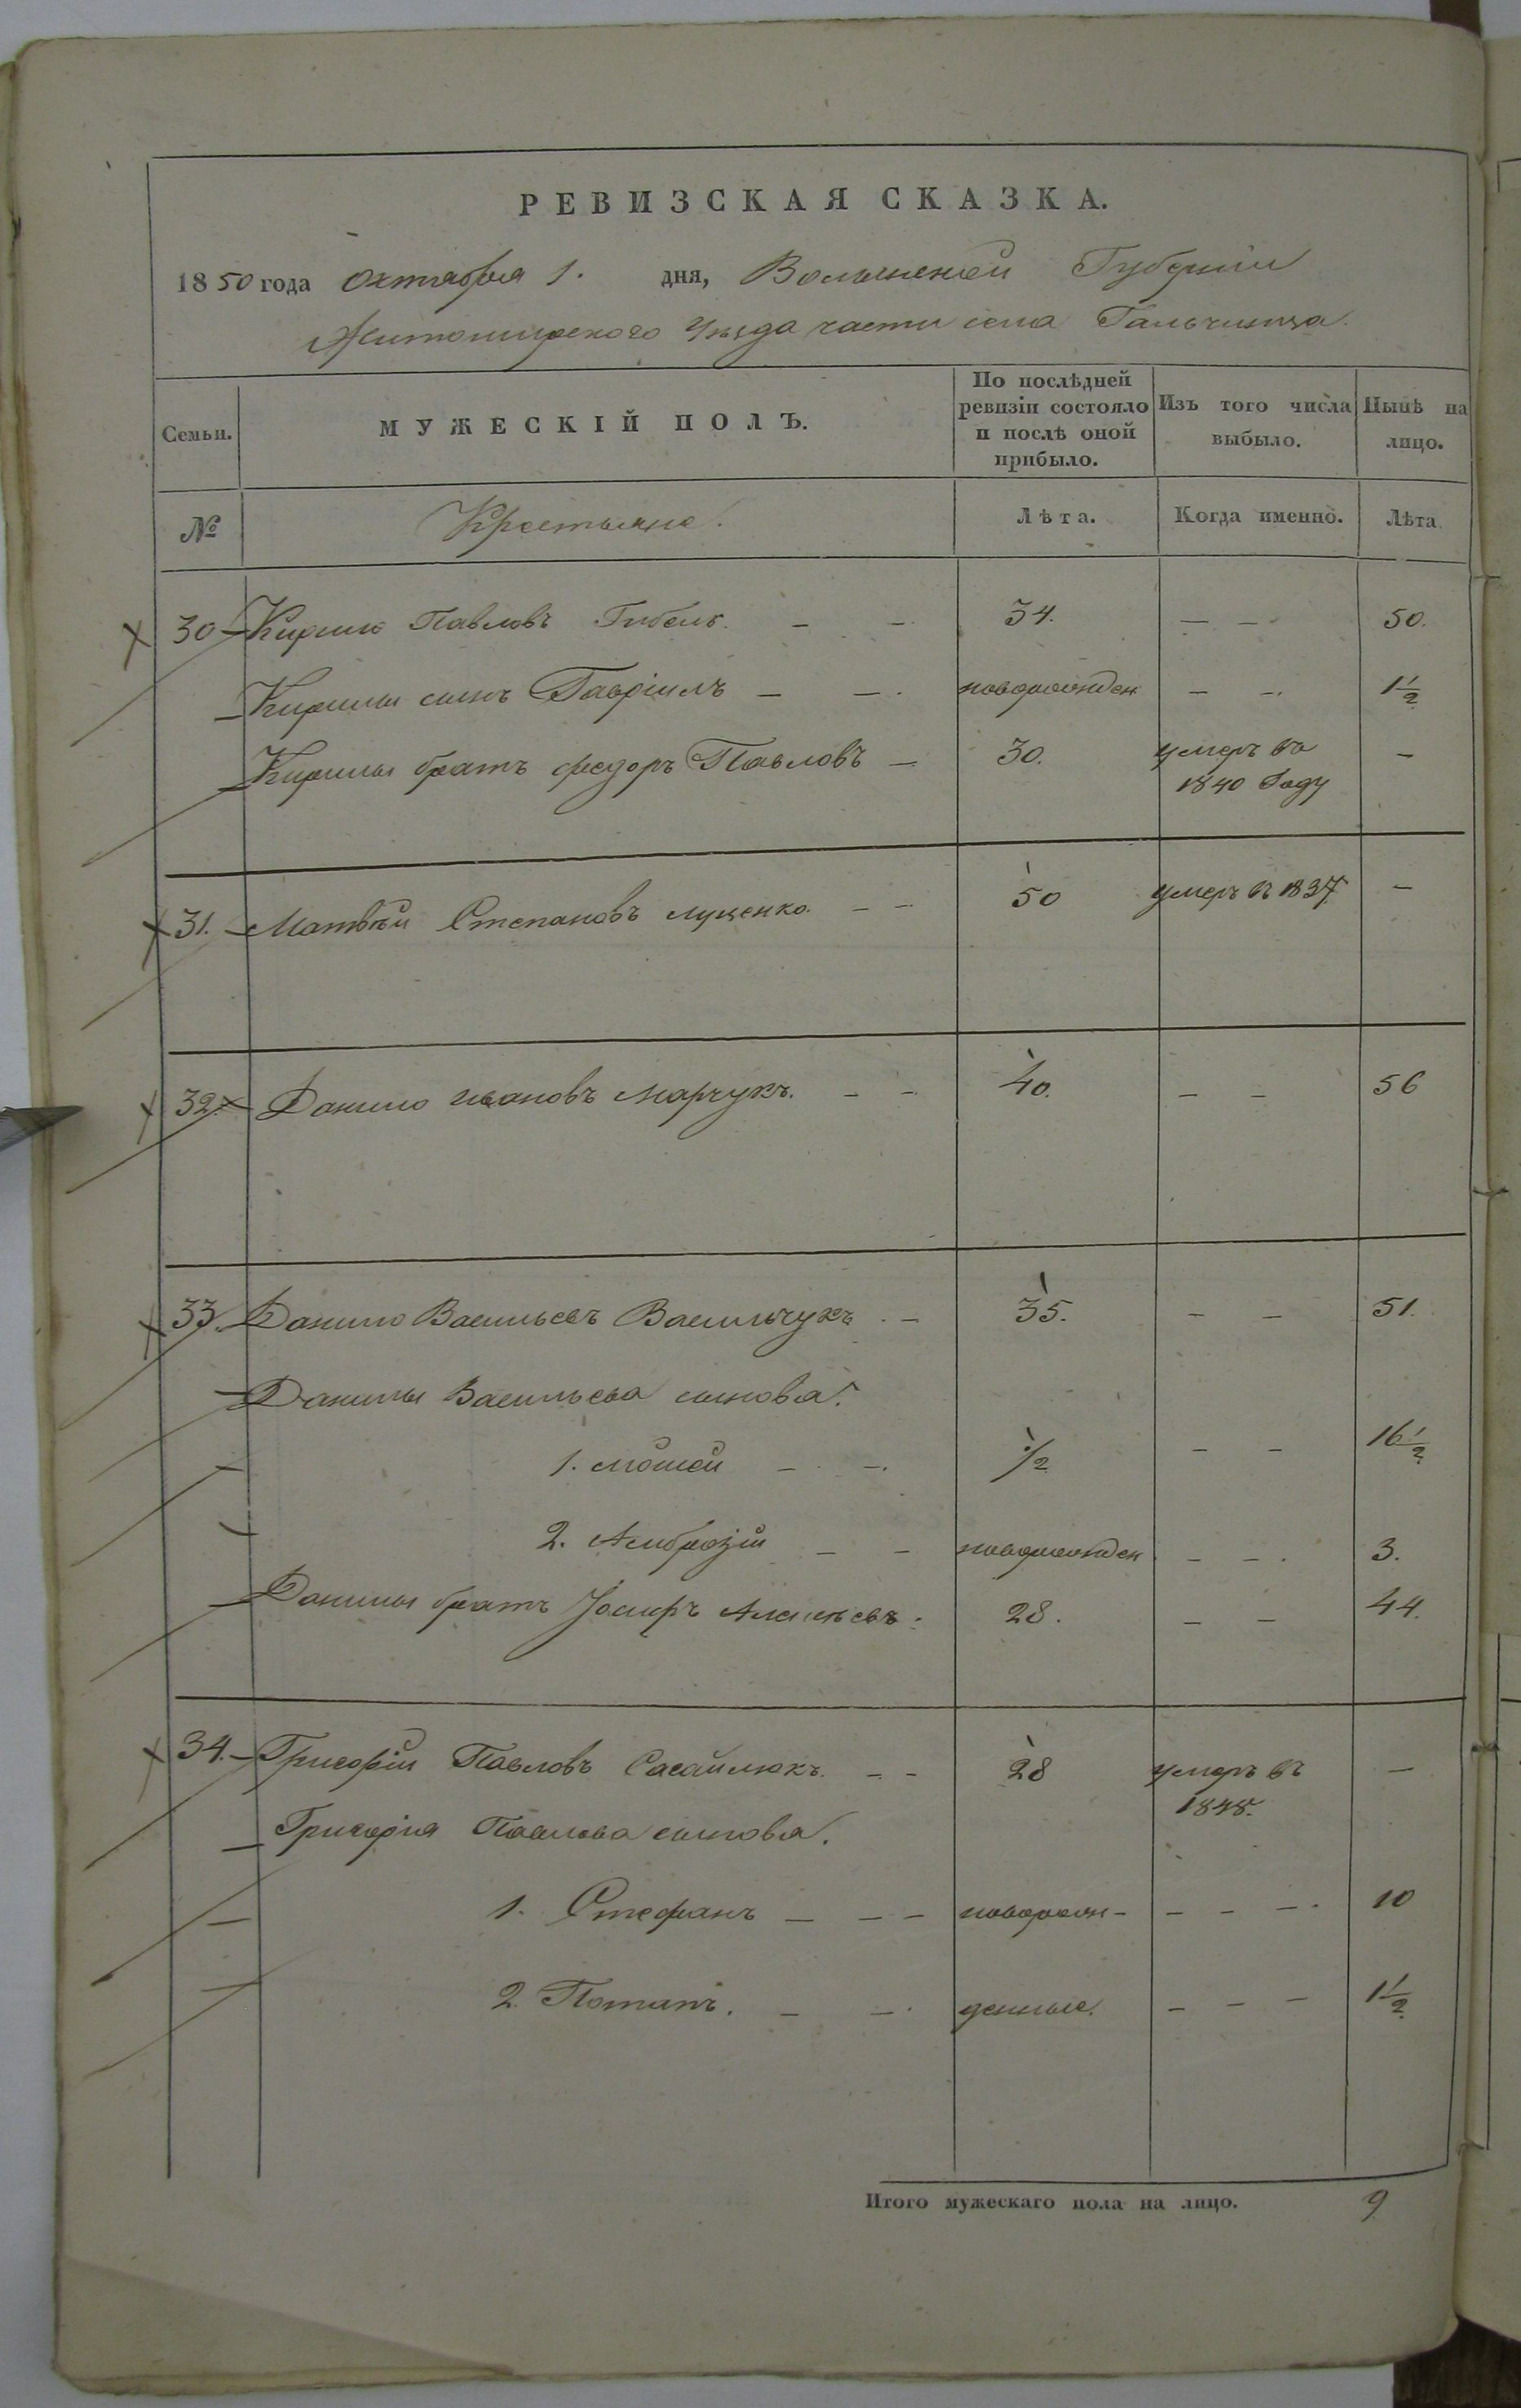 РЕВИЗСКАЯ СКАЗКА.
1850 года Октября 1. дня, Волынской Губерніи
Житомирского Уезда части села Гальчинца.
Семьи. МУЖЕСКІЙ ПОЛЪ. По послѣдней ревизіи состояло и послѣ оной прибыло. Изъ того числа выбыло. Нынѣ на лицо.
№ Крестьяне. Лѣта. Когда именно. Лѣта
30 Кирило Павловъ 34. — — 50.
Кирилы сынъ Гавріилъ — — новорожден — — 1½
Кирилы братъ Федоръ Павловъ — 30. умеръ въ 1840 Году —
31. Матвѣй Степановъ Луценко. — — 50 умеръ въ 1837 —
32. Данило Ивановъ Марчукъ. — — 40. — — 56
33. Данило Васильевъ Васильчукъ — 35. — — 51.
Данилы Васильева сыновья.
1. Мойсей — — ½ — — 16½
2. Амброзій — — новорожден — — 3.
Данилы братъ Іосифъ 28. — — 44.
34. Григорій Павловъ Сасайлюкъ. — — 28 умеръ въ 1848. —
Григорія Павлова сыновья.
1. Стефанъ — — — новорож- — — — 10
2. Потапъ. — — денные. — — — 1½
Итого мужескаго пола на лицо. 9